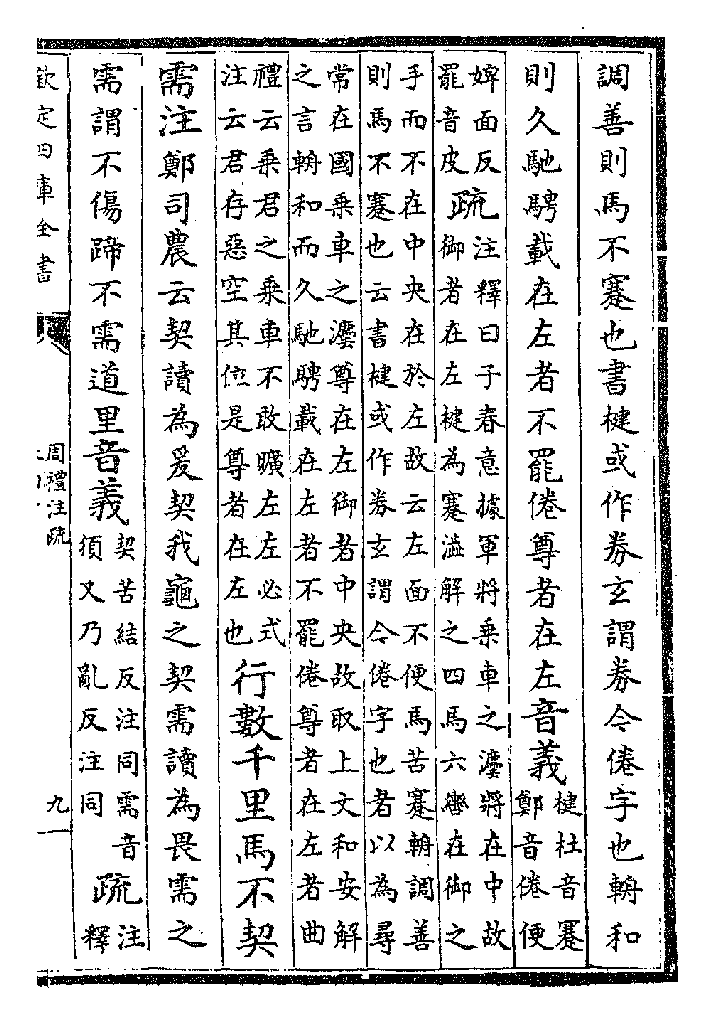 調善則馬不蹇也書楗或作券玄謂券今倦字也輈和
則久馳騁載在左者不罷倦尊者在左音義楗杜音蹇鄭音倦便
婢面反罷音皮疏注釋曰子春意據軍將乘車之灋將在中故御者在左楗為蹇澁解之四馬六轡在御之
手而不在中央在於左故云左面不便馬苦蹇輈調善則馬不蹇也云書楗或作券玄謂今倦字也者以為尋
常在國乘車之灋尊在左御者中央故取上文和安解之言輈和而久馳騁載在左者不罷倦尊者在左者曲
禮云乘君之乘車不敢曠左左必式注云君存惡空其位是尊者在左也行數千里馬不契
需注鄭司農云契讀為爰契我龜之契需讀為畏需之
需謂不傷蹄不需道里音義契苦結反注同需音須又乃亂反注同疏注釋
欽定四庫全書
周禮注疏
九